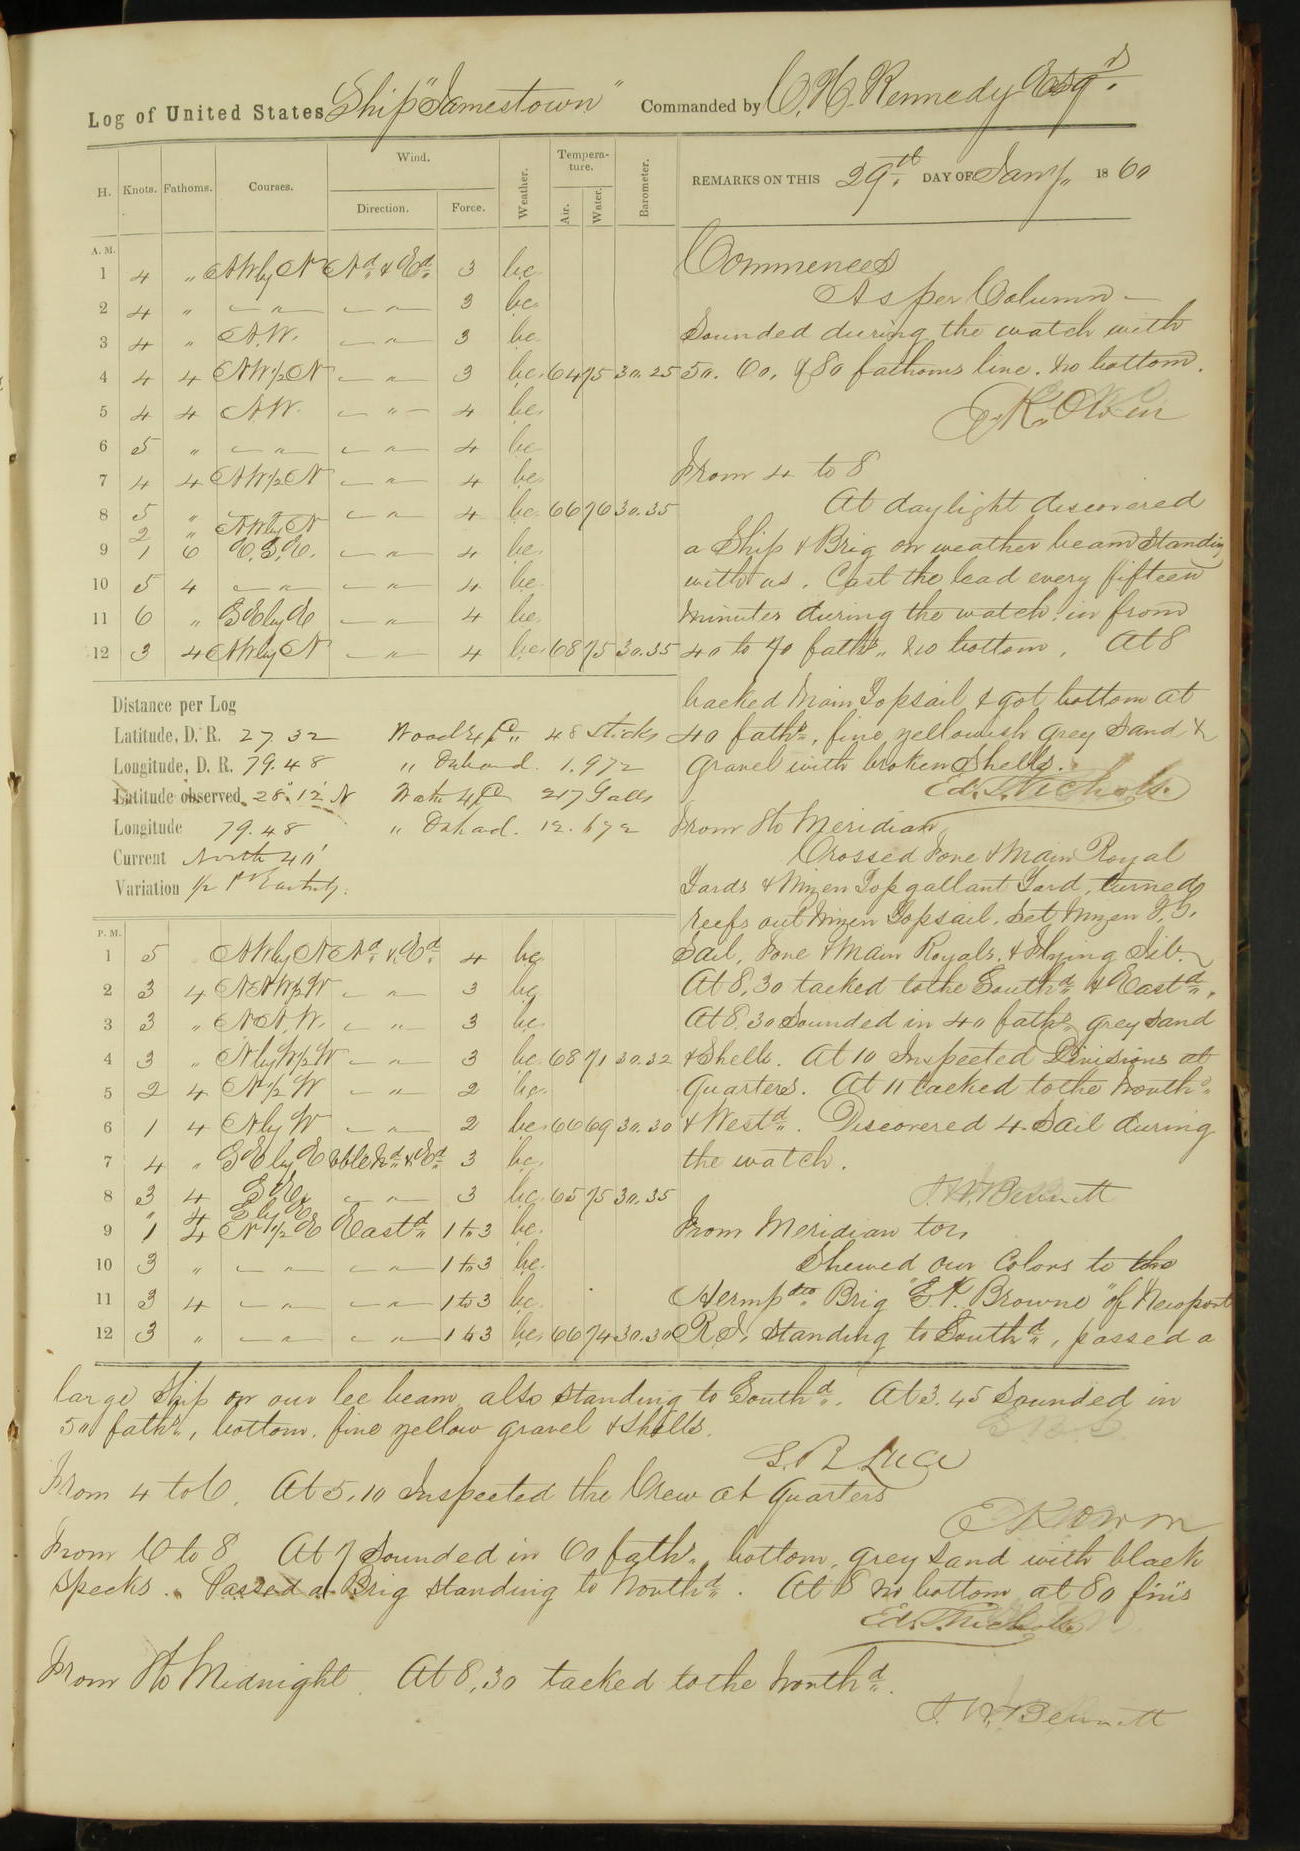 Log of United States Ship "Jamestown" Commanded by C. H. Kennedy Esqr.
H. Knots. Fathoms. Courses. Wind. Direction. Force. Weather. Tempera-ture. Air. Water. Barometer. REMARKS ON THIS 29th DAY OF Jany 1860
A. M.
1 4 " NW by N Nd & Ed 3 bc
2 4 " — " — — " — 3 bc
3 4 " N.W. — " — 3 bc
4 4 4 NW ½ N — " — 3 bc 64 75 30.25
5 4 4 N.W. — " — 4 bc
6 5 " — " — — " — 4 bc
7 4 4 NW ½ N — " — 4 bc
8 5 " — " — 4 bc 66 76 30.35
2 " NW by N
9 1 6 E.S.E. — " — 4 bc
10 5 4 — " — — " — 4 bc
11 6 " SE by E — " — 4 bc
12 3 4 NW by N — " — 4 bc 68 75 30.35
Commences
As per Column —
Sounded during the watch with
50. 60. & 80 fathoms line. No bottom.
From 4 to 8
At daylight discovered
a Ship & Brig on weather beam standing
with us. Cast the lead every fifteen
minutes during the watch in from
40 to 70 faths. No bottom. At 8
backed Main Topsail & got bottom at
40 faths, fine yellowish grey sand &
gravel with broken Shells.
Ed. T. Nichols
Distance per Log
Latitude, D. R. 27 32 Wood Exp 48 sticks
Longitude, D. R. 79.48 " On hand. 1.972
Latitude observed 28°.12' N Water Exp 217 Galls
Longitude 79.48 " On hand. 12.672
Current North 40'
Variation ½ Pt Easterly.
From 8 to Meridian
Crossed Fore & Main Royal
Yards & Mizen Topgallant Yard, turned
reefs out Mizen Topsail. Set Mizen T. G.
Sail, Fore & Main Royals, & Flying Jib.
At 8.30 tacked to the Southd & Eastd.
At 8.30 Sounded in 40 faths grey sand
& Shells. At 10 Inspected Divisions at
Quarters. At 11 tacked to the North
& Westd. Discovered 4 Sail during
the watch.
J. W. Bennett
P. M.
1 5 NW by N Nd & Ed 4 bc
2 3 4 NNW ½ W — " — 3 bc
3 3 " N.N.W. — " — 3 bc
4 3 " N by W ½ W — " — 3 bc 68 71 30.32
5 2 4 N ½ W — " — 2 bc
6 1 4 N by W — " — 2 bc 66 69 30.30
7 4 " SE by E vble Nd & Ed 3 bc
8 3 4 S.E. — " — 3 bc 65 75 30.35
" 4 E by E
9 1 4 N ½ E Eastd 1 to 3 bc
10 3 " — " — — " — 1 to 3 bc
11 3 4 — " — — " — 1 to 3 bc
12 3 " — " — — " — 1 to 3 bc 66 74 30.30
From Meridian to 4
Shewed our Colors to the
Hermpdto Brig "E. P. Browne" of Newport
R I. standing to Southd, passed a
large Ship on our lee beam also standing to Southd. At 3.45 Sounded in
50 faths, bottom, fine yellow gravel & shells.
S. B. Luce
From 4 to 6. At 5.10 Inspected the Crew at Quarters
From 6 to 8 At 7 Sounded in 60 faths bottom, grey sand with black
specks. Passed a Brig standing to Northd. At 8 no bottom at 80 fms
Ed. T. Nichols
From 8 to Midnight. At 8.30 tacked to the Northd.
J. W. Bennett